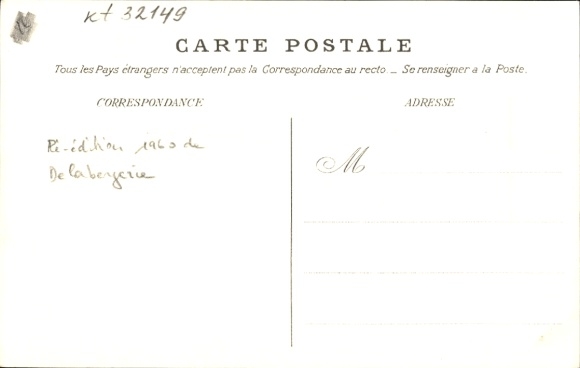 kt 32149
CARTE POSTALE
Tous les Pays étrangers n'acceptent pas la Correspondance au recto _ Se renseigner a la Poste.
CORRESPONDANCE
ADRESSE
Ré-édition 1960 de
Delabergerie
M